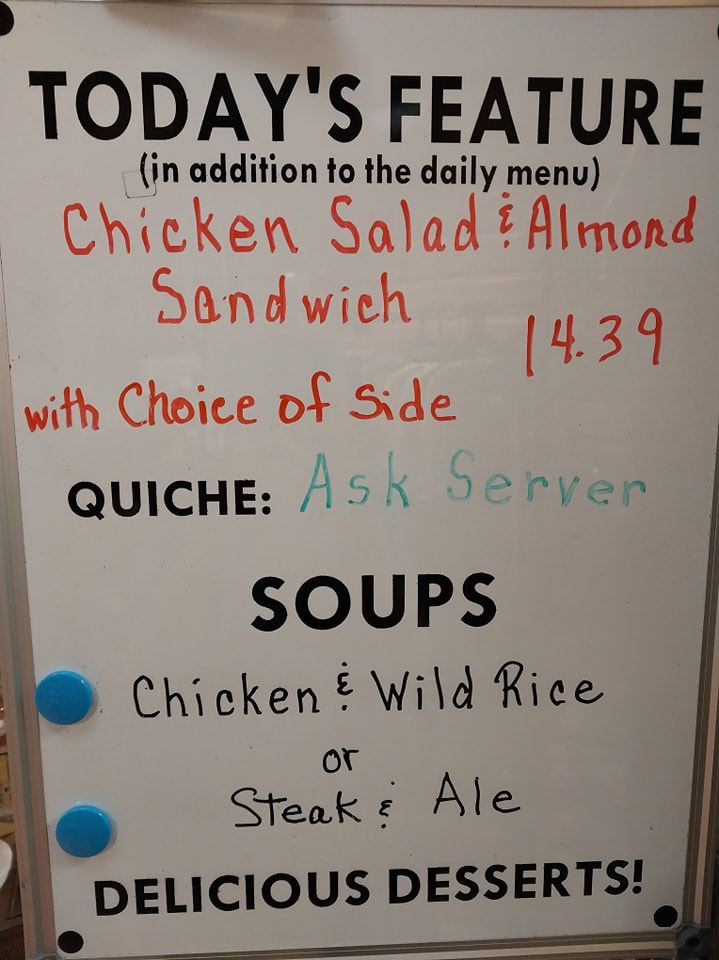 TODAY'S FEATURE
(in addition to the daily menu)
Chicken Salad & Almond
Sandwich
14.39
with Choice of Side
QUICHE: Ask Server
SOUPS
Chicken & Wild Rice
or
Steak & Ale
DELICIOUS DESSERTS!